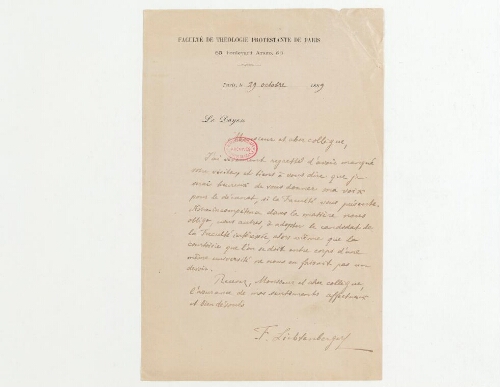 FACULTÉ DE THÉOLOGIE PROTESTANTE DE PARIS
83 Boulevard Arago, 83
Paris, le 29 octobre 1889
Le Doyen
Monsieur et cher collègue,
J'ai vivement regretté d'avoir manqué
votre visite et tiens à vous dire que je
serai heureux de vous donner ma voix
pour le décanat, si la Faculté vous présente.
Notre incompétence dans la matière nous
oblige, nous autres, à adopter le candidat de
la Faculté intéressée alors même que la
courtoisie que l'on se doit entre corps d'une
même université ne nous en ferait pas un
devoir.
Recevez, Monsieur et cher collègue,
l'assurance de mes sentiments affectueux
et bien dévoués
F. Lichtenberger